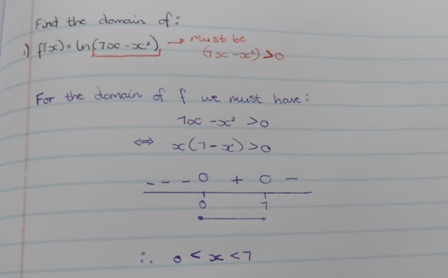 Find the domain of:
1) f(x) = ln(7x - x²) → must be
(7x - x²) > 0
For the domain of f we must have:
7x - x² > 0
⇔ x(7 - x) > 0
- - - 0 + 0 -
0 7
∴ 0 < x < 7